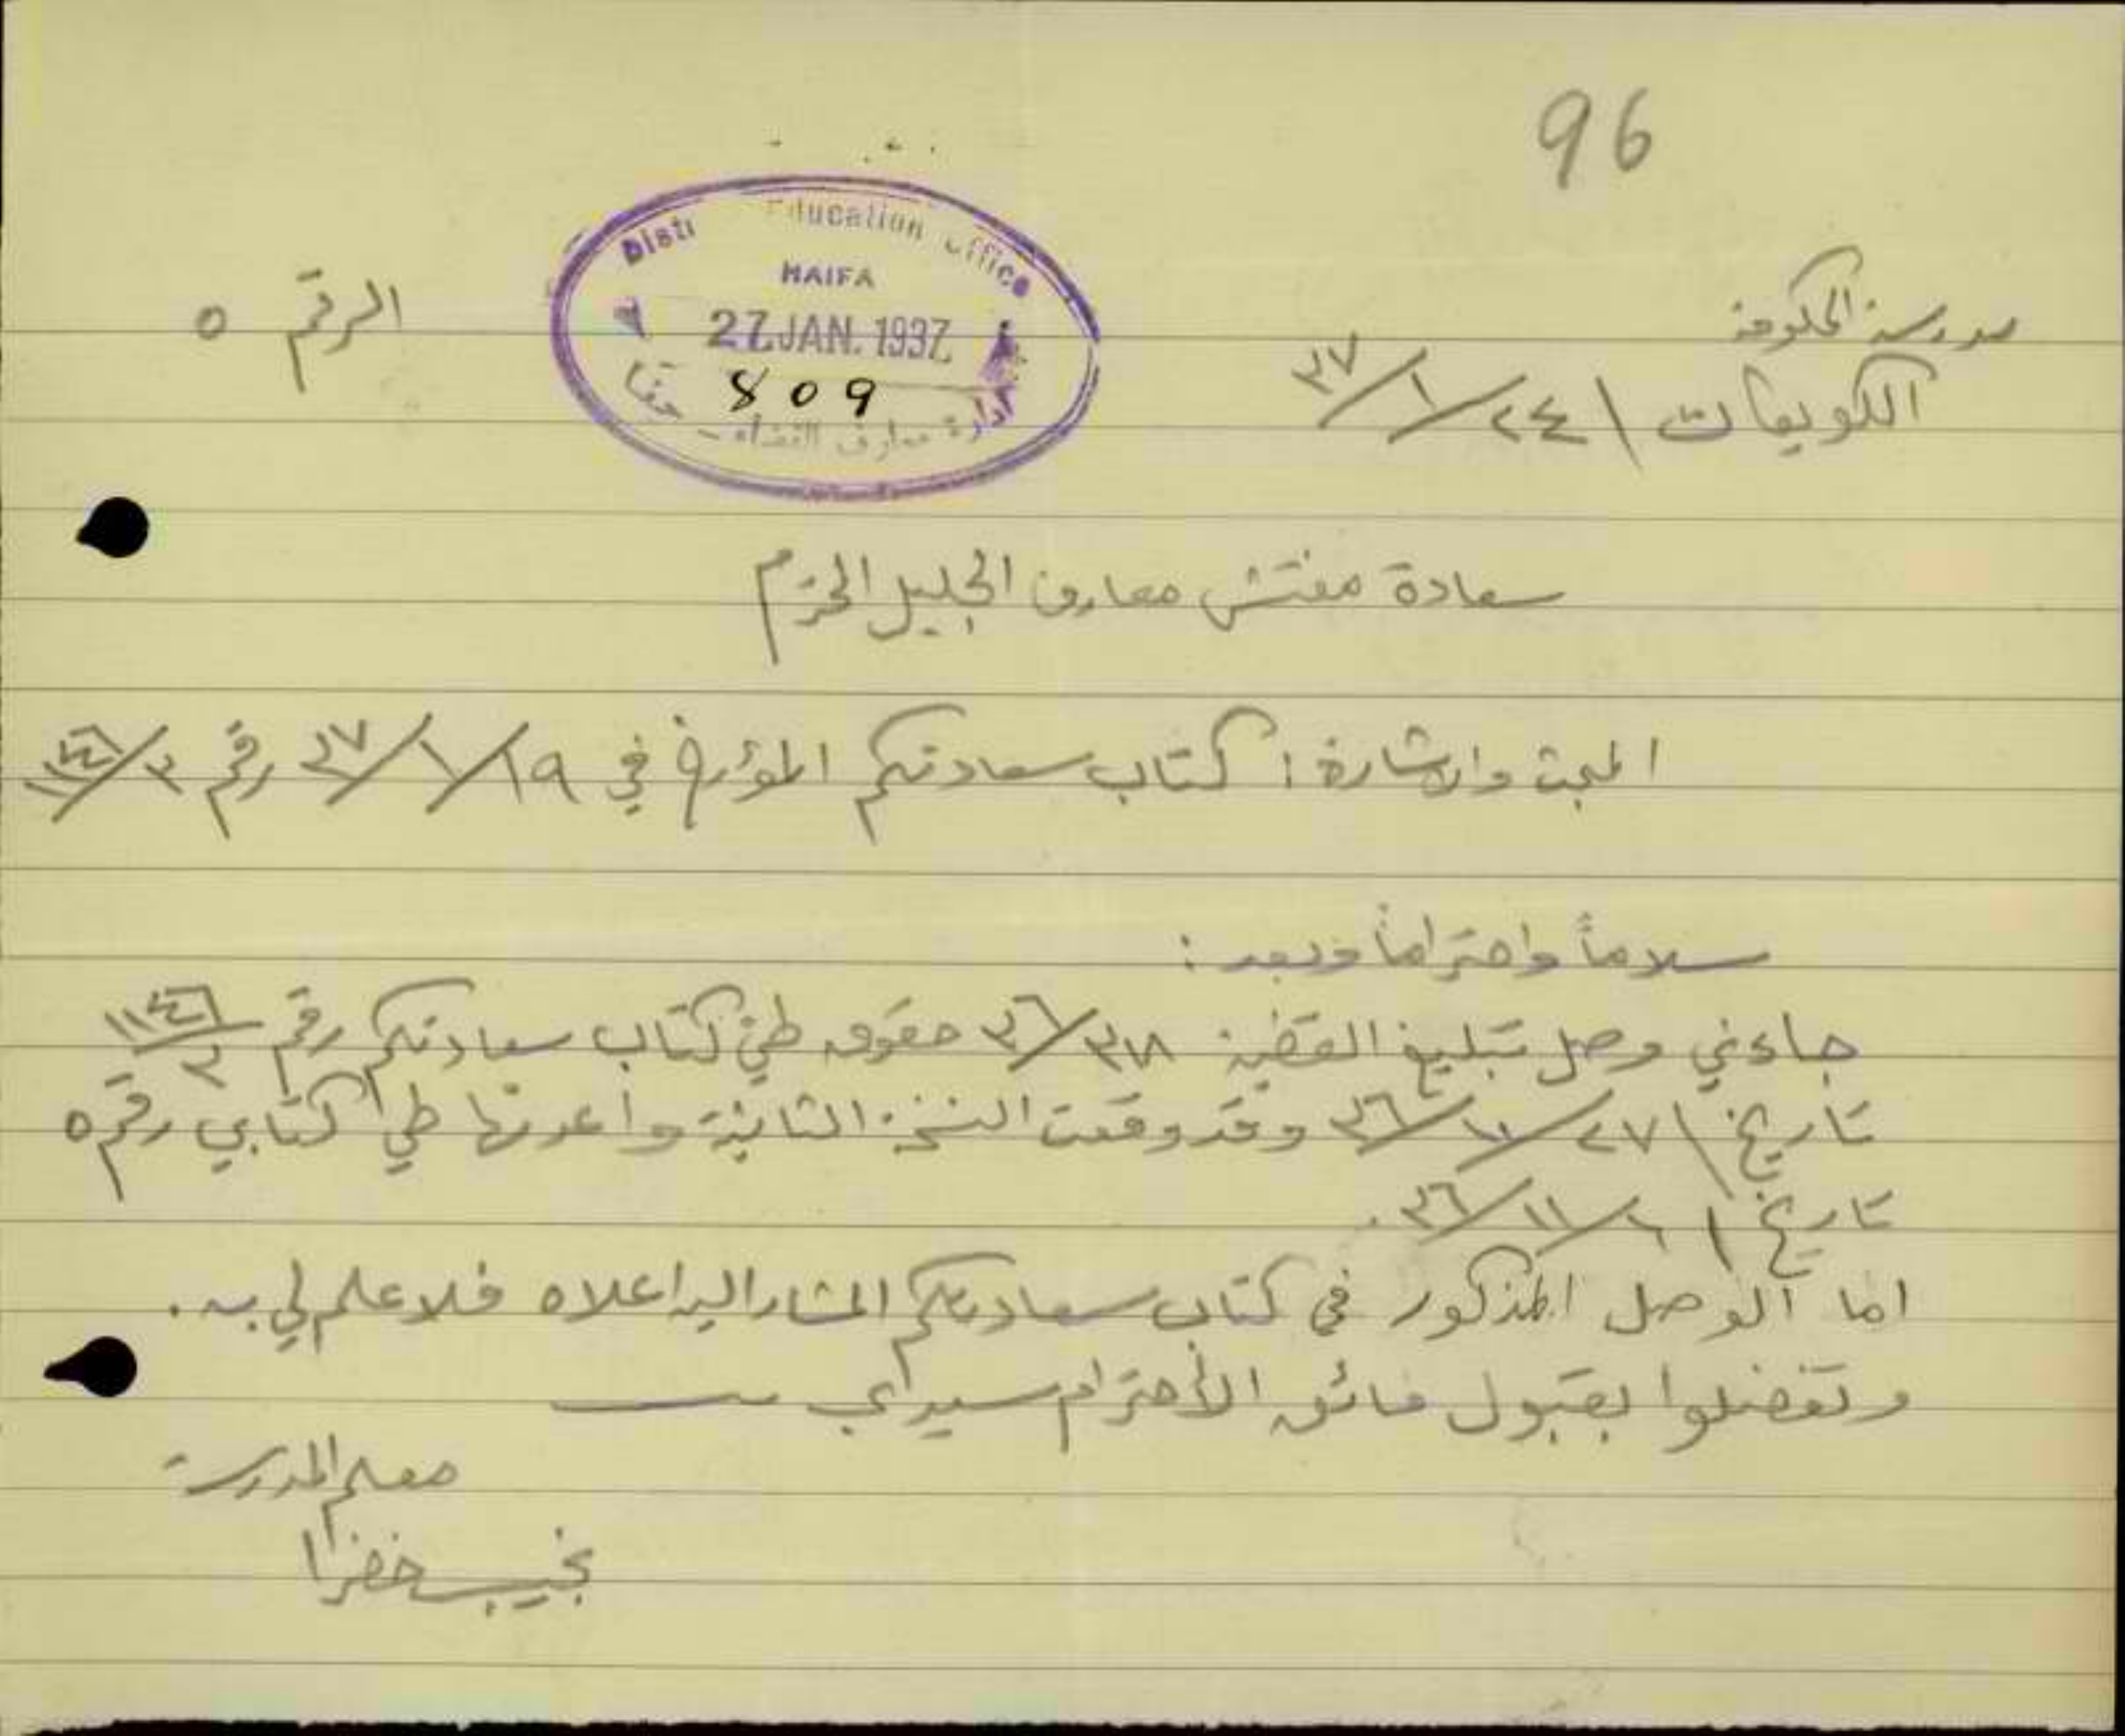 96
مدرسة الحكومة
الكويكات ٢٤/١/٣٧
الرقم ٥
Education Office
HAIFA
27.JAN.1937
809
ادارة معارف القضاء - حيفا
سعادة مفتش معارف الجليل المحترم
المبحث والاشارة: كتاب سعادتكم المؤرخ في ١٩/١/٣٧ رقم ١١٤٦/٣
سلاماً واحتراماً وبعد:
جاءني وصل تبليغ القضية ٣٦/٣١٨ حقوق طيّ كتاب سعادتكم رقم ١١٤٦/٣
تاريخ ٢٧/١٠/٣٦ وقد وقعت النسخة الثانية وأعدتها طي كتابي رقم ٥
تاريخ ١١/٣٦.
اما الوصل المذكور في كتاب سعادتكم المشار اليه اعلاه فلا علم لي به.
وتفضلوا بقبول فائق الأحترام سيدي
معلم المدرسة
نجيب خضرا